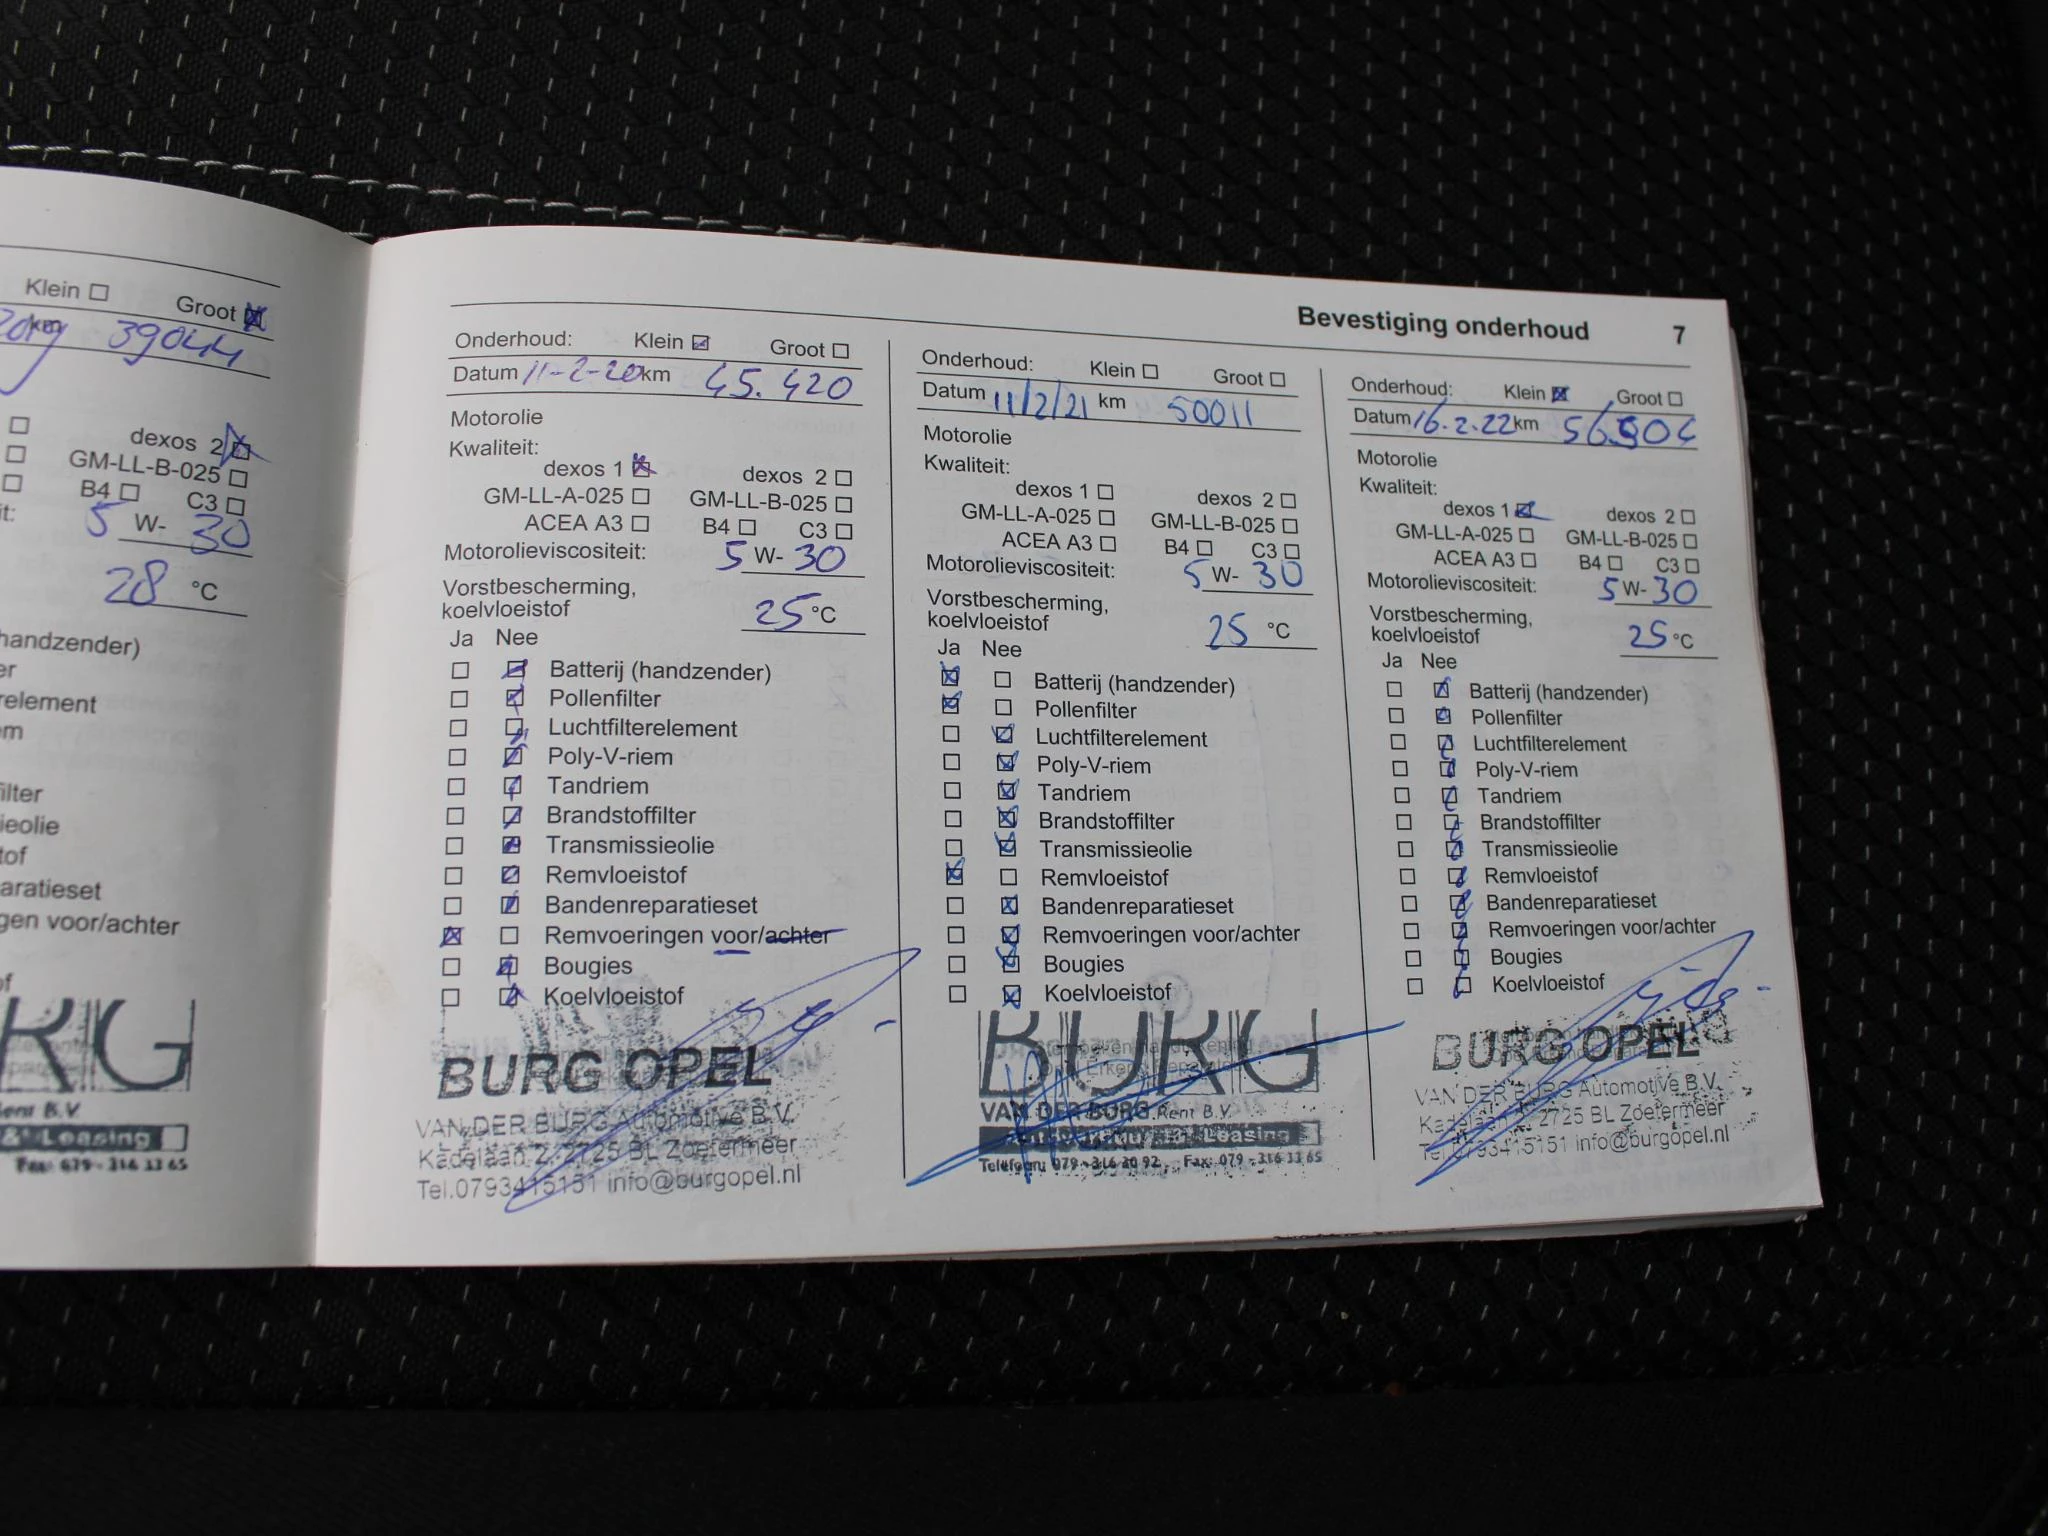 Klein ☐ Groot ☒
km 39044
☐ dexos 2 ☒
☐ GM-LL-B-025 ☐
☐ B4 ☐ C3 ☐
5 W- 30
28 °C
handzender)
relement
aratieset
gen voor/achter
RG
Rent B.V.
& Leasing
Fax: 079 - 316 33 65
Bevestiging onderhoud 7
Onderhoud: Klein ☒ Groot ☐
Datum 11-2-20 km 45.420
Motorolie
Kwaliteit:
dexos 1 ☒ dexos 2 ☐
GM-LL-A-025 ☐ GM-LL-B-025 ☐
ACEA A3 ☐ B4 ☐ C3 ☐
Motorolieviscositeit: 5 W- 30
Vorstbescherming,
koelvloeistof 25 °C
Ja Nee
☐ ☒ Batterij (handzender)
☐ ☒ Pollenfilter
☐ ☒ Luchtfilterelement
☐ ☒ Poly-V-riem
☐ ☒ Tandriem
☐ ☒ Brandstoffilter
☐ ☒ Transmissieolie
☐ ☒ Remvloeistof
☐ ☒ Bandenreparatieset
☒ ☐ Remvoeringen voor/achter
☐ ☒ Bougies
☐ ☒ Koelvloeistof
BURG OPEL
VAN DER BURG Automotive B.V.
Kadelaan 2, 2725 BL Zoetermeer
Tel.0793415151 info@burgopel.nl
Onderhoud: Klein ☐ Groot ☐
Datum 11/2/21 km 50011
Motorolie
Kwaliteit:
dexos 1 ☐ dexos 2 ☐
GM-LL-A-025 ☐ GM-LL-B-025 ☐
ACEA A3 ☐ B4 ☐ C3 ☐
Motorolieviscositeit: 5 W- 30
Vorstbescherming,
koelvloeistof 25 °C
Ja Nee
☒ ☐ Batterij (handzender)
☒ ☐ Pollenfilter
☐ ☒ Luchtfilterelement
☐ ☒ Poly-V-riem
☐ ☒ Tandriem
☐ ☒ Brandstoffilter
☐ ☒ Transmissieolie
☒ ☐ Remvloeistof
☐ ☒ Bandenreparatieset
☐ ☒ Remvoeringen voor/achter
☐ ☒ Bougies
☐ ☒ Koelvloeistof
BURG
VAN DER BURG Rent B.V.
Leasing
Telefoon: 079 - 316 20 92 Fax: 079 - 316 33 65
Onderhoud: Klein ☒ Groot ☐
Datum 16.2.22 km
Motorolie
Kwaliteit:
dexos 1 ☒ dexos 2 ☐
GM-LL-A-025 ☐ GM-LL-B-025 ☐
ACEA A3 ☐ B4 ☐ C3 ☐
Motorolieviscositeit: 5 W- 30
Vorstbescherming,
koelvloeistof 25 °C
Ja Nee
☐ ☒ Batterij (handzender)
☐ ☒ Pollenfilter
☐ ☒ Luchtfilterelement
☐ ☒ Poly-V-riem
☐ ☒ Tandriem
☐ ☒ Brandstoffilter
☐ ☒ Transmissieolie
☐ ☒ Remvloeistof
☐ ☒ Bandenreparatieset
☐ ☒ Remvoeringen voor/achter
☐ ☒ Bougies
☐ ☒ Koelvloeistof
BURG OPEL
VAN DER BURG Automotive B.V.
Kadelaan 2, 2725 BL Zoetermeer
Tel.0793415151 info@burgopel.nl